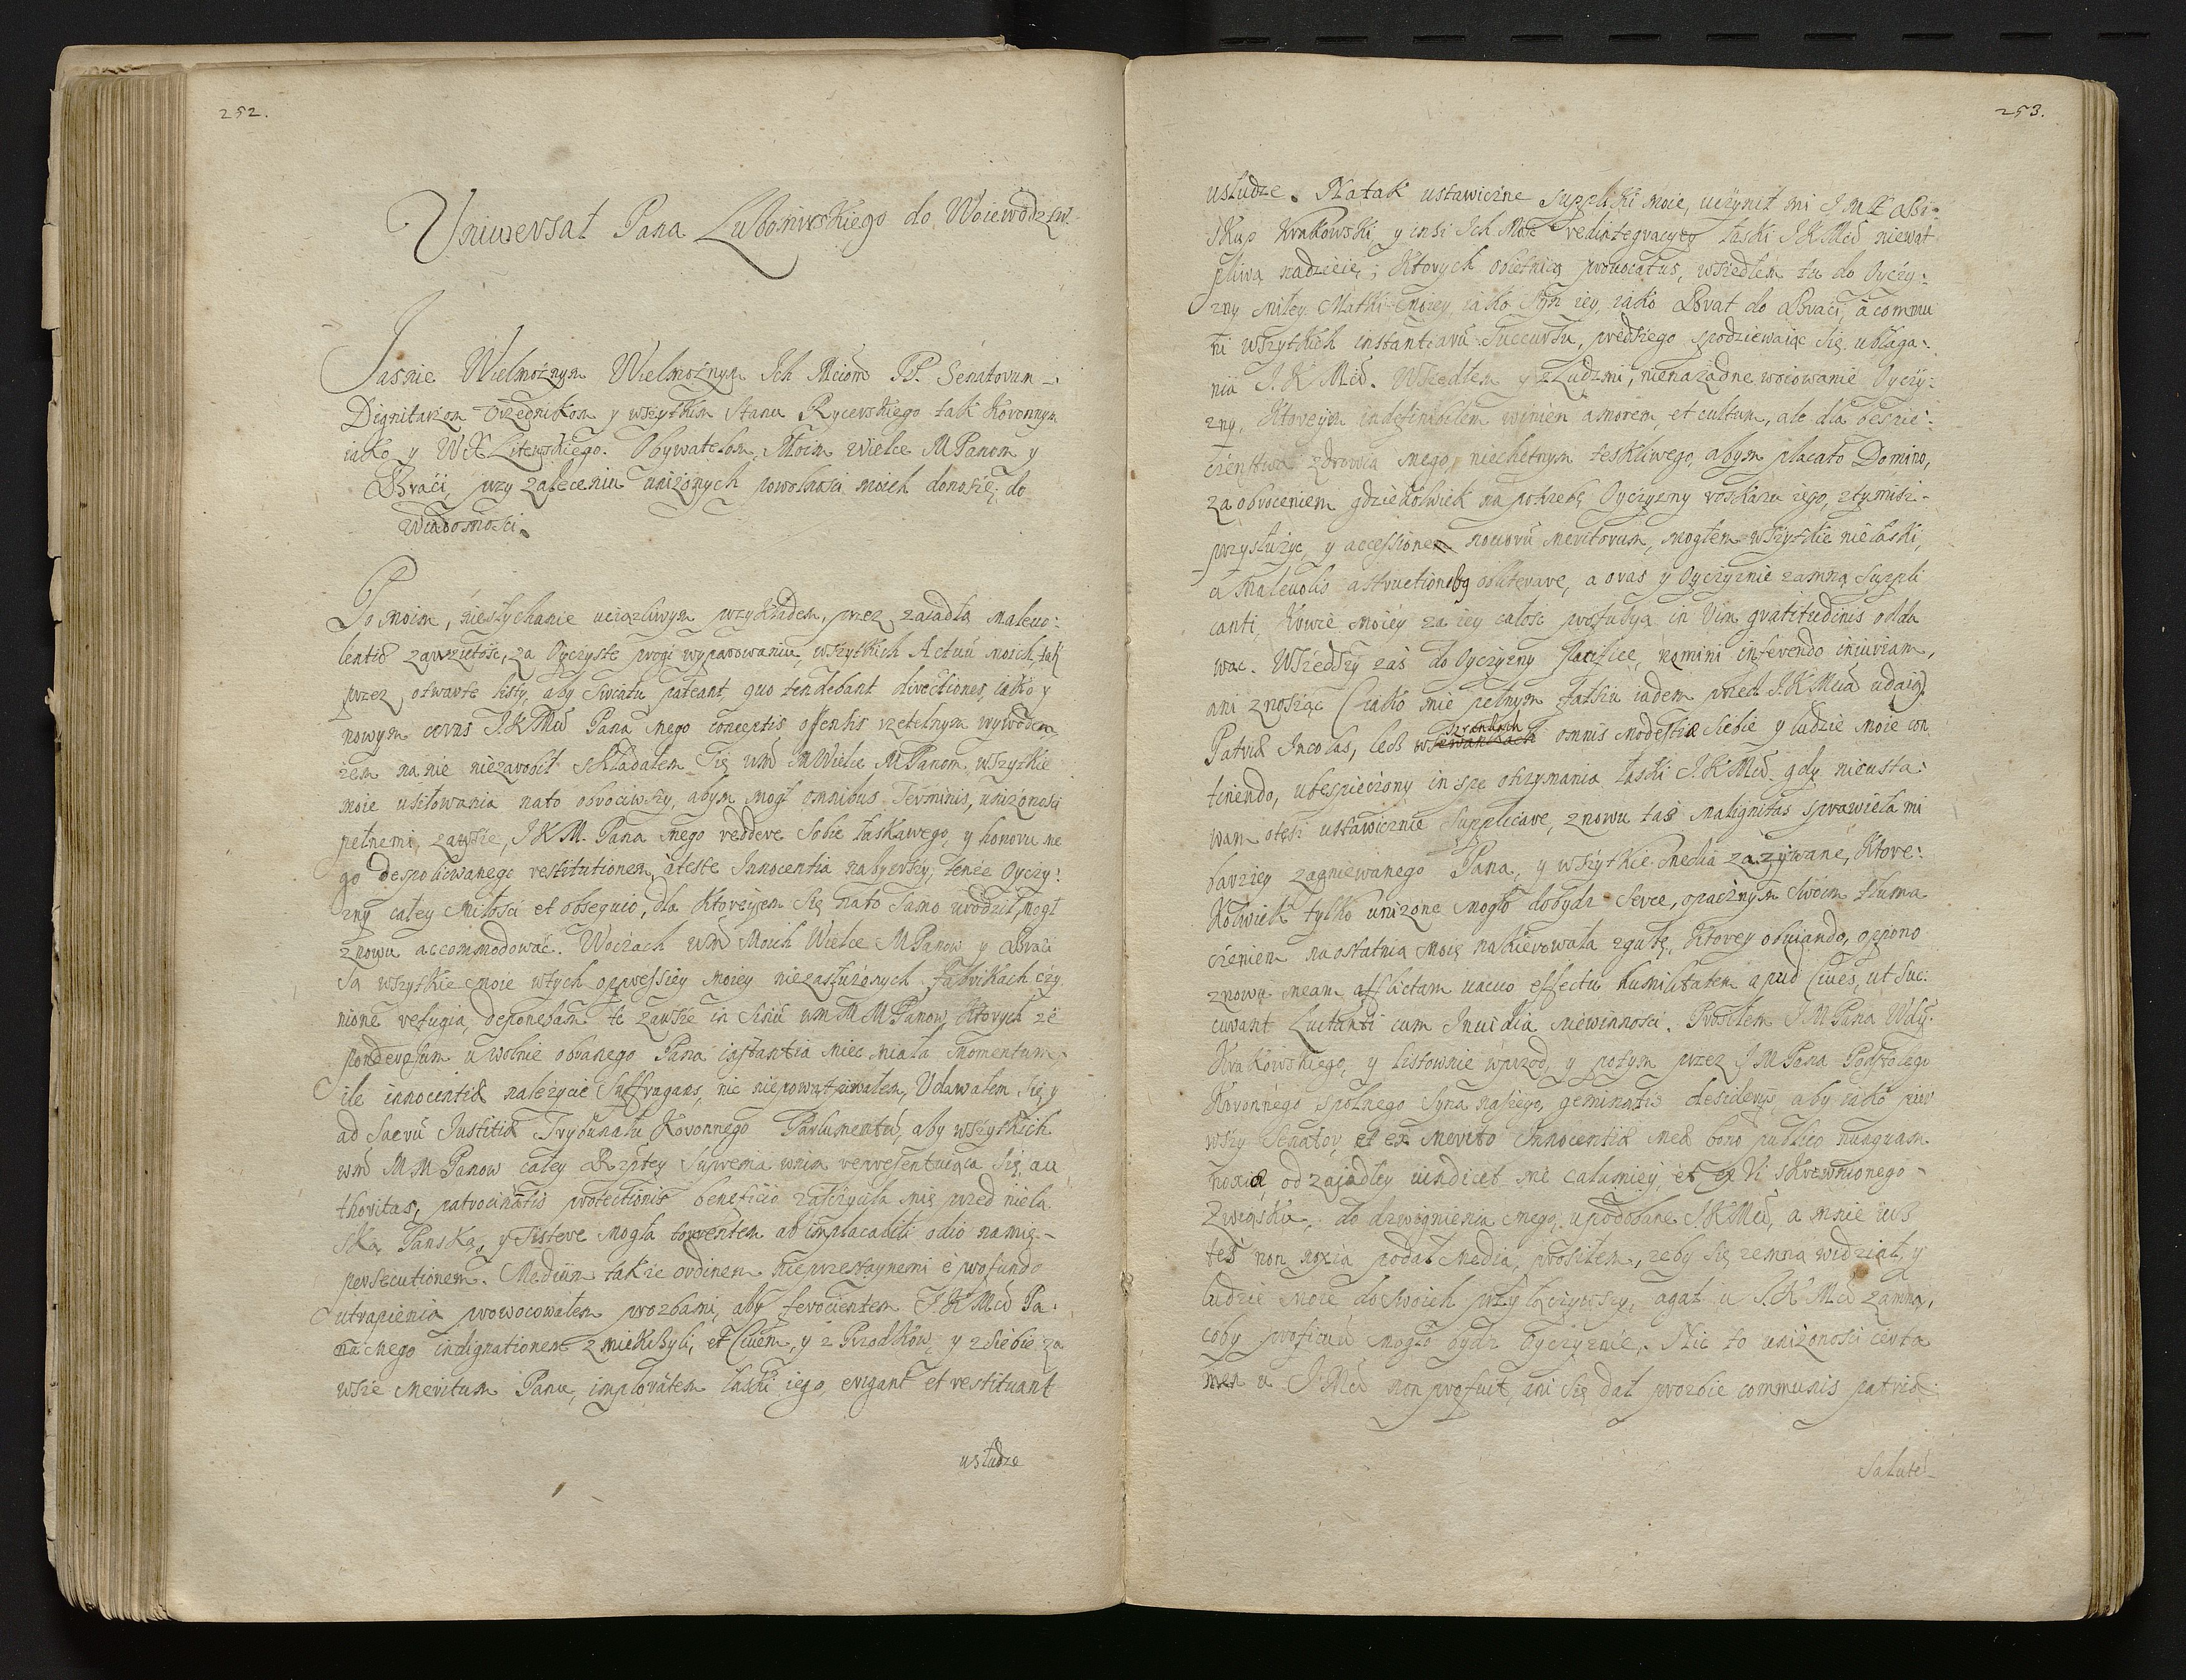 252.
Uniwersał Pana Lubomirskiego do Woiewodztw
Jasnie Wielmożnym Wielmożnym Ich Mciom PP. Senatorom
Dignitarzom Vrzędnikom y wszytkim Stanu Rycerskiego tak Koronnym
iako y WX Litewskiego. Obywatelom, Moim Wielce MPanom y
Braci, przy zaleceniu uniżonych powolnosci moich donoszę do
Wiadomosci.
Po moim, niesłychanie uciążliwym przykładem, przez zaiadłą malevo:
lentiæ zawziętość, za Oyczyste progi wyparowaniu, wszytkich Actuū moich, tak
przez otwarte listy, aby Swiatu pateant quo tendebant directiones, iako y
nowym coraz J.K.Mći Pana mego conceptis offensis rzetelnym wywodem,
żem na nie niezarobił składałem się wm̃ MWielce MPanom wszytkie
moie usiłowania nato obrociwszy, abym mogł omnibus Terminis, uniżonosci
pełnemi, zawsze, J.K.M. Pana mego reddere sobie łaskawego, y honoru me
go despolicowanego restitutionem, ateste Innocentia nabywszy, tenże Oyczy:
zny całey miłosci et obsequio, dla ktoreyem się nato samo urodził, mogł
znowu accommodować. Woczach wm̃ Moich Wielce MPanow y Braci
Są wszytkie moie wtych oppressiey moiey niezasłużonych fabrikach czy
nione refugia, deponebam te zawsze in sinū wm̃ MMPanow, ktorych że
ponderosum u wolnie obranego Pana instantia miec miała momentum,
ile innocentiæ należycie Suffragans, nic niepowątpiwałem, Udawałem się y
ad Sacrū Justitiæ Trybunału Koronnego Parlamentū, aby wszytkich
wm̃ MMPanow całey Rzptey Suprema wnim reprezentuiąca się, au
thoritas, patrocinantis protectionis beneficio zaszczyciła mię przed niela
ską Panską, y Sistere mogła torrentem ab implacabili odio namię
persecutionem. Mediūm także ordinem nieprzestaynemi è profundo
utrapienia prowocowałem prozbami, aby ferocientem J.K.Mći Pa:
na mego indignationem zmiękczyli, et Civem, y z Przodkow, y zsiebie za
wsze meritum Panu, implorātem łaski iego, erigant et restituant
usłudze
253.
usłudze. Natak ustawiczne Suppliki moie, uczynił mi JMX Bi:
skup Krakowski y insi Ich Mść redintegracyey łaski J.K.Mći niewąt
pliwą nadzieię; Ktorych obietnicą provocatus, wszedłem tu do Oyczy:
zny miłey Matki moiey, iako Syn iey, iako Brat do Braci, à commu
ni wszytkich instantiarū Succursu, prędkiego spodziewaiąc się ubłaga:
nia J.K.Mći. Wszedłem y zLudzmi, nienażadne woiowanie Oyczy:
zny, Ktoreyem indefinibilem winien amorem, et cultum, ale dla bespie:
czenstwa zdrowia mego, niechętnym teskliwego, abym placato Domino,
za obroceniem gdziekolwiek na potrzebę Oyczyzny roskazu iego, ztymisz
przysłużyc, y accessionem novorū meritorum, mogłem wszytkie niełaski,
à Malevolis astructionibq obliterare, a oraz y Oyczyznie zamną Suppli
canti, krwie moiéy za iey całosc profusya in Vim gratitudinis odda
wac. Wszedszy zaś do Oyczyzny Pacifice, nemini inferendo iniuriam,
ani znosząc (iako mie pełnym fałszu iadem przed J.K.Mcią udaią)
Patriæ Incolas, lecz w Szrankach omnis modestiæ siebie y ludzie moie con
tinendo, ubespieczony in spe otrzymania łaski J.K.Mći. gdy nieusta:
wam otęsz ustawicznie Supplicare, znowu tasz malignitas sprawiła mi
barziey zagniewanego Pana, y wszytkie media zażywane, Ktore:
kolwiek tylko unizone mogło dobydz Serce, opacznym Swoim tłuma
czeniem naostatnią moię naskierowała zgubę, Ktorey obviando, oppono
znowu meam afflictam vacuo effectu humilitatem apud Cives, ut Suc:
currant Luctanti cum Invidia niewinnosci. Prosiłem JMPana Wdę
Krakowskiego, y listownie wprzod, y potym przez JMPana Podstolego
Koronnego, spolnego Syna naszego, geminatis desideryis, aby iako pier
wszy Senator, et ex merito Innocentiæ meæ bono publico nunquam
noxiæ, od zajadłey uindicet me calumniey, et ex Vi skrewnionego
Związku, do dzwignienia mego, upodobane J.K.Mći, a mnie iusz
też non noxia podał media, prosiłem, zeby się zemną widział, y
ludzie moie do swoich przyłączywszy, agat u J.K.Mći zamną,
coby proficuū mogło bydz Oyczyznie. Nic to uniżonosci certa
men u JMći non profuit, ani się dał prozbie communis patriæ
Salutē